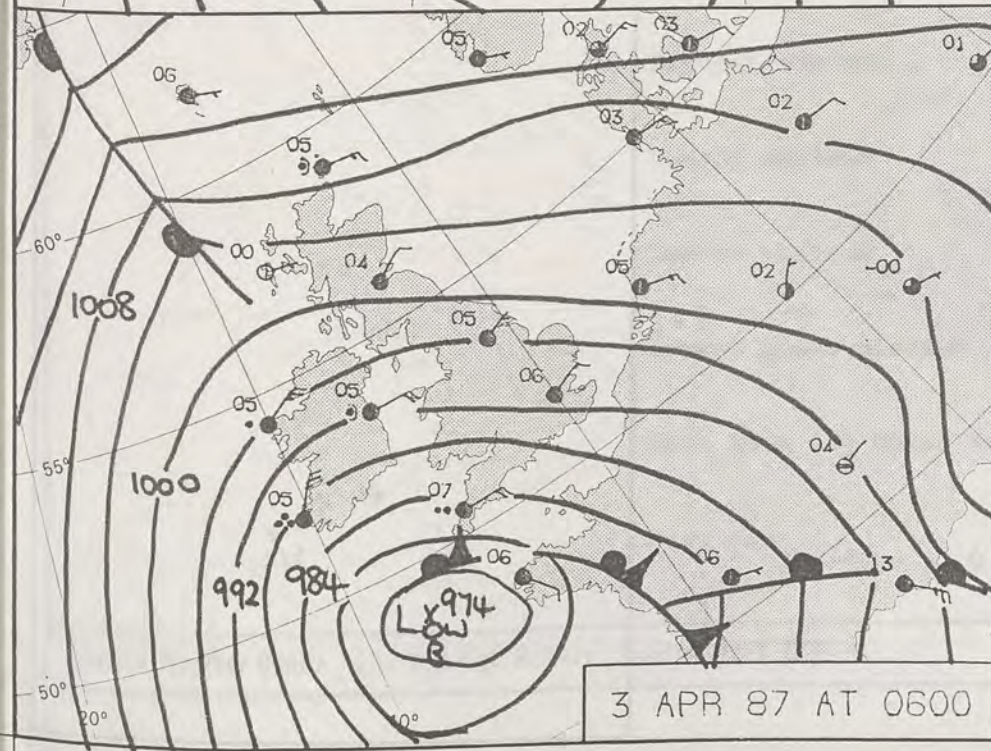 05
02
03
01
06
02
03
05
60°
00
04
05
02
-00
1008
05
06
05
05
04
55°
1000
05
07
06
06
13
992
984
974
LOW
B
50°
20°
10°
3 APR 87 AT 0600